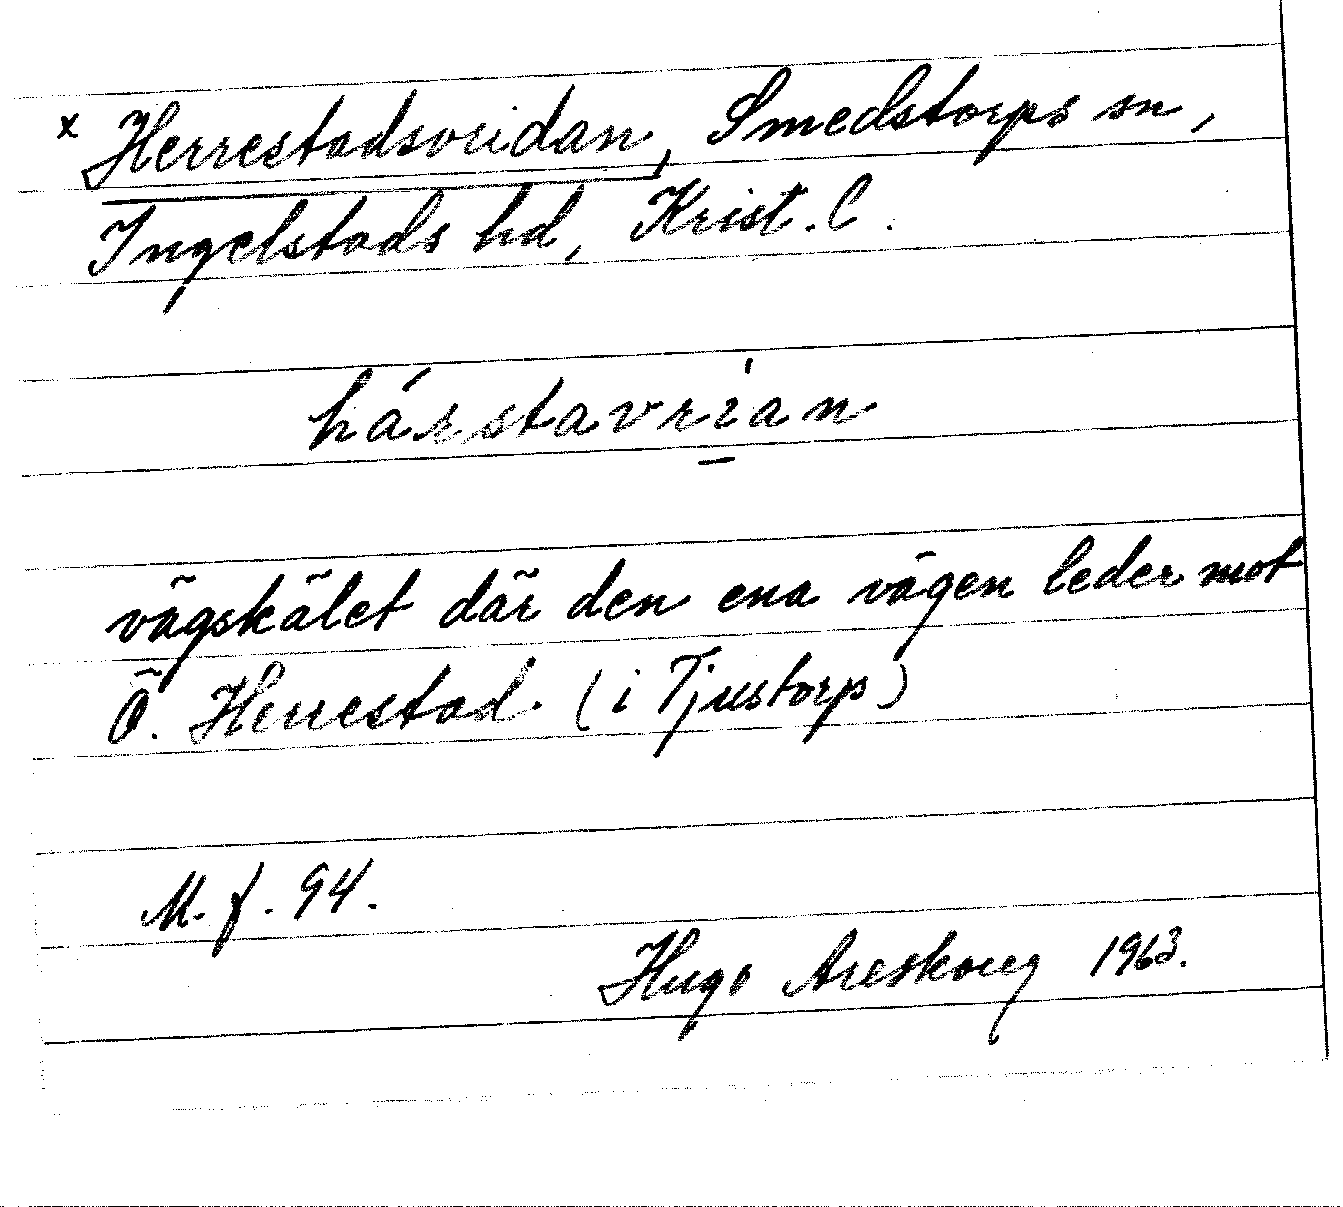 x Herrestadsvridan, Smedstorps sn,
Ingelstads hd, Krist. l.
hárstavrían
vägskälet där den ena vägen leder mot
Ö. Herrestad. (i Tjustorp)
M. f. 94.
Hugo Areskoug 1963.